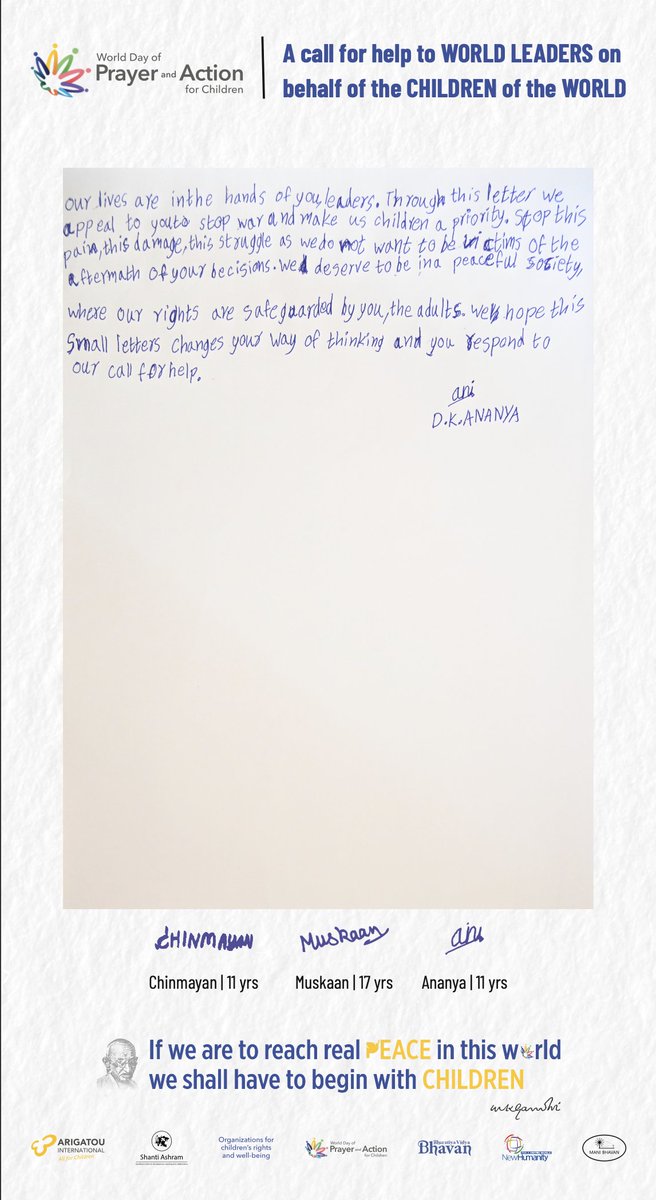 World Day of
Prayer and Action
for Children
A call for help to WORLD LEADERS on
behalf of the CHILDREN of the WORLD
our lives are inthe hands of you,leaders. Through this letter we
appeal to youto stop war and make us children a priority. Stop this
pain,this damage,this struggle as wedo not want to be victims of the
aftermath of your decisions. We deserve to be ina peaceful society,
where our rights are safeguarded by you,the adults. We hope this
small letters changes your way of thinking and you respond to
our call for help.
ani
D.K.ANANYA
CHINMAYAN Muskaan ani
Chinmayan | 11 yrs Muskaan | 17 yrs Ananya | 11 yrs
If we are to reach real PEACE in this world
we shall have to begin with CHILDREN
mkgandhi
ARIGATOU
INTERNATIONAL
All for Children
Shanti Ashram
Organizations for
children's rights
and well-being
World Day of
Prayer and Action
for Children
Bharatiya Vidya
Bhavan
NewHumanity
MANI BHAVAN